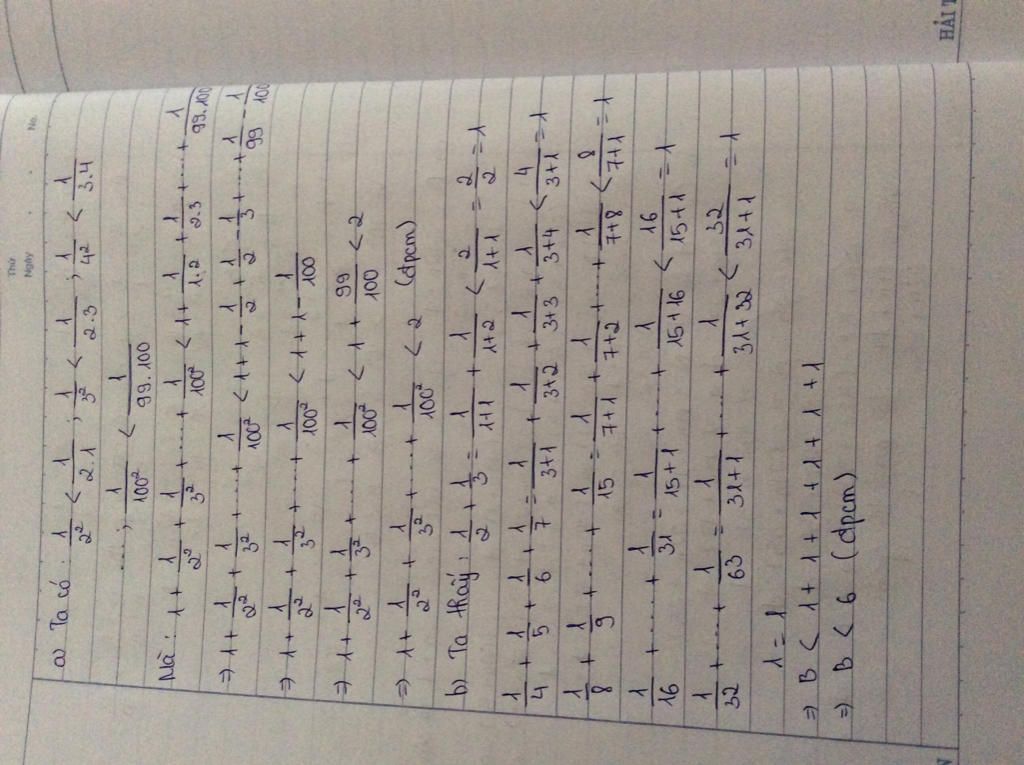 Thứ
Ngày
No.
a) Ta có: 1/2² < 1/2.1 ; 1/3² < 1/2.3 ; 1/4² < 1/3.4
....; 1/100² < 1/99.100
Mà: 1 + 1/2² + 1/3² + ..... + 1/100² < 1 + 1/1.2 + 1/2.3 + .... + 1/99.100
=> 1 + 1/2² + 1/3² + ..... + 1/100² < 1 + 1 - 1/2 + 1/2 - 1/3 + .... + 1/99 - 1/100
=> 1 + 1/2² + 1/3² + ..... + 1/100² < 1 + 1 - 1/100
=> 1 + 1/2² + 1/3² + ..... + 1/100² < 1 + 99/100 < 2
=> 1 + 1/2² + 1/3² + ..... + 1/100² < 2 (đpcm)
b) Ta thấy: 1/2 + 1/3 = 1/1+1 + 1/1+2 < 2/1+1 = 2/2 = 1
1/4 + 1/5 + 1/6 + 1/7 = 1/3+1 + 1/3+2 + 1/3+3 + 1/3+4 < 4/3+1 = 1
1/8 + 1/9 + .... + 1/15 = 1/7+1 + 1/7+2 + .... + 1/7+8 < 8/7+1 = 1
1/16 + ...... + 1/31 = 1/15+1 + ..... + 1/15+16 < 16/15+1 = 1
1/32 + ..... + 1/63 = 1/31+1 + ..... + 1/31+32 < 32/31+1 = 1
1 = 1
=> B < 1 + 1 + 1 + 1 + 1 + 1
=> B < 6 (đpcm)
HẢI T